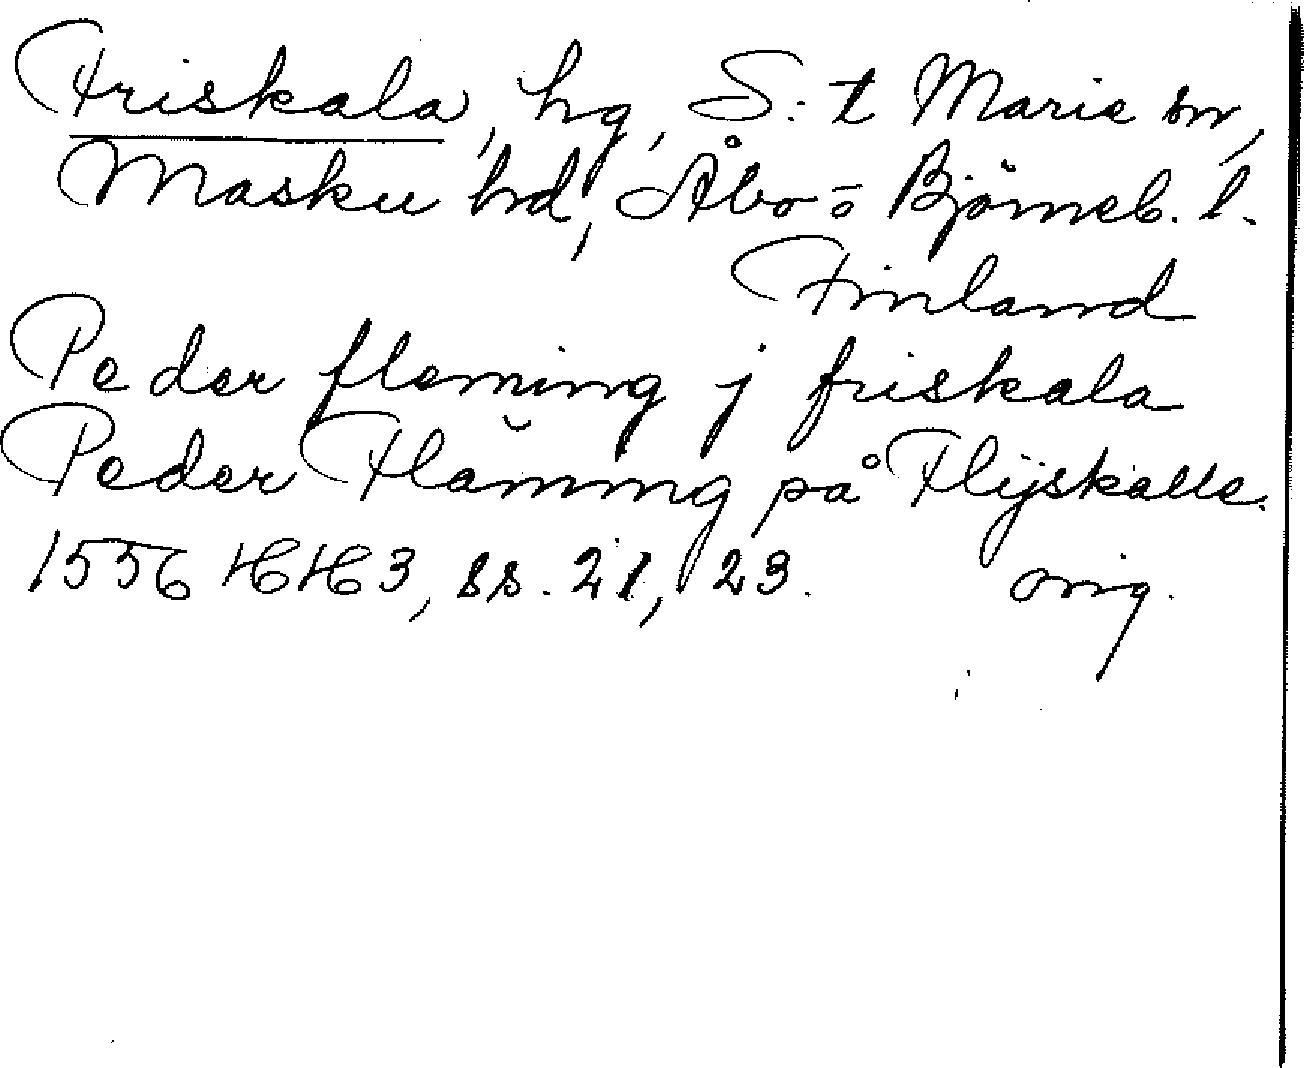 Friskala, hg, S:t Marie sn,
Masku hd, Åbo o Björneb. l.
Finland
Peder fleming j friskala
Peder Flämming på Flijskalle.
1556 HH 3, ss. 21, 23. orig.